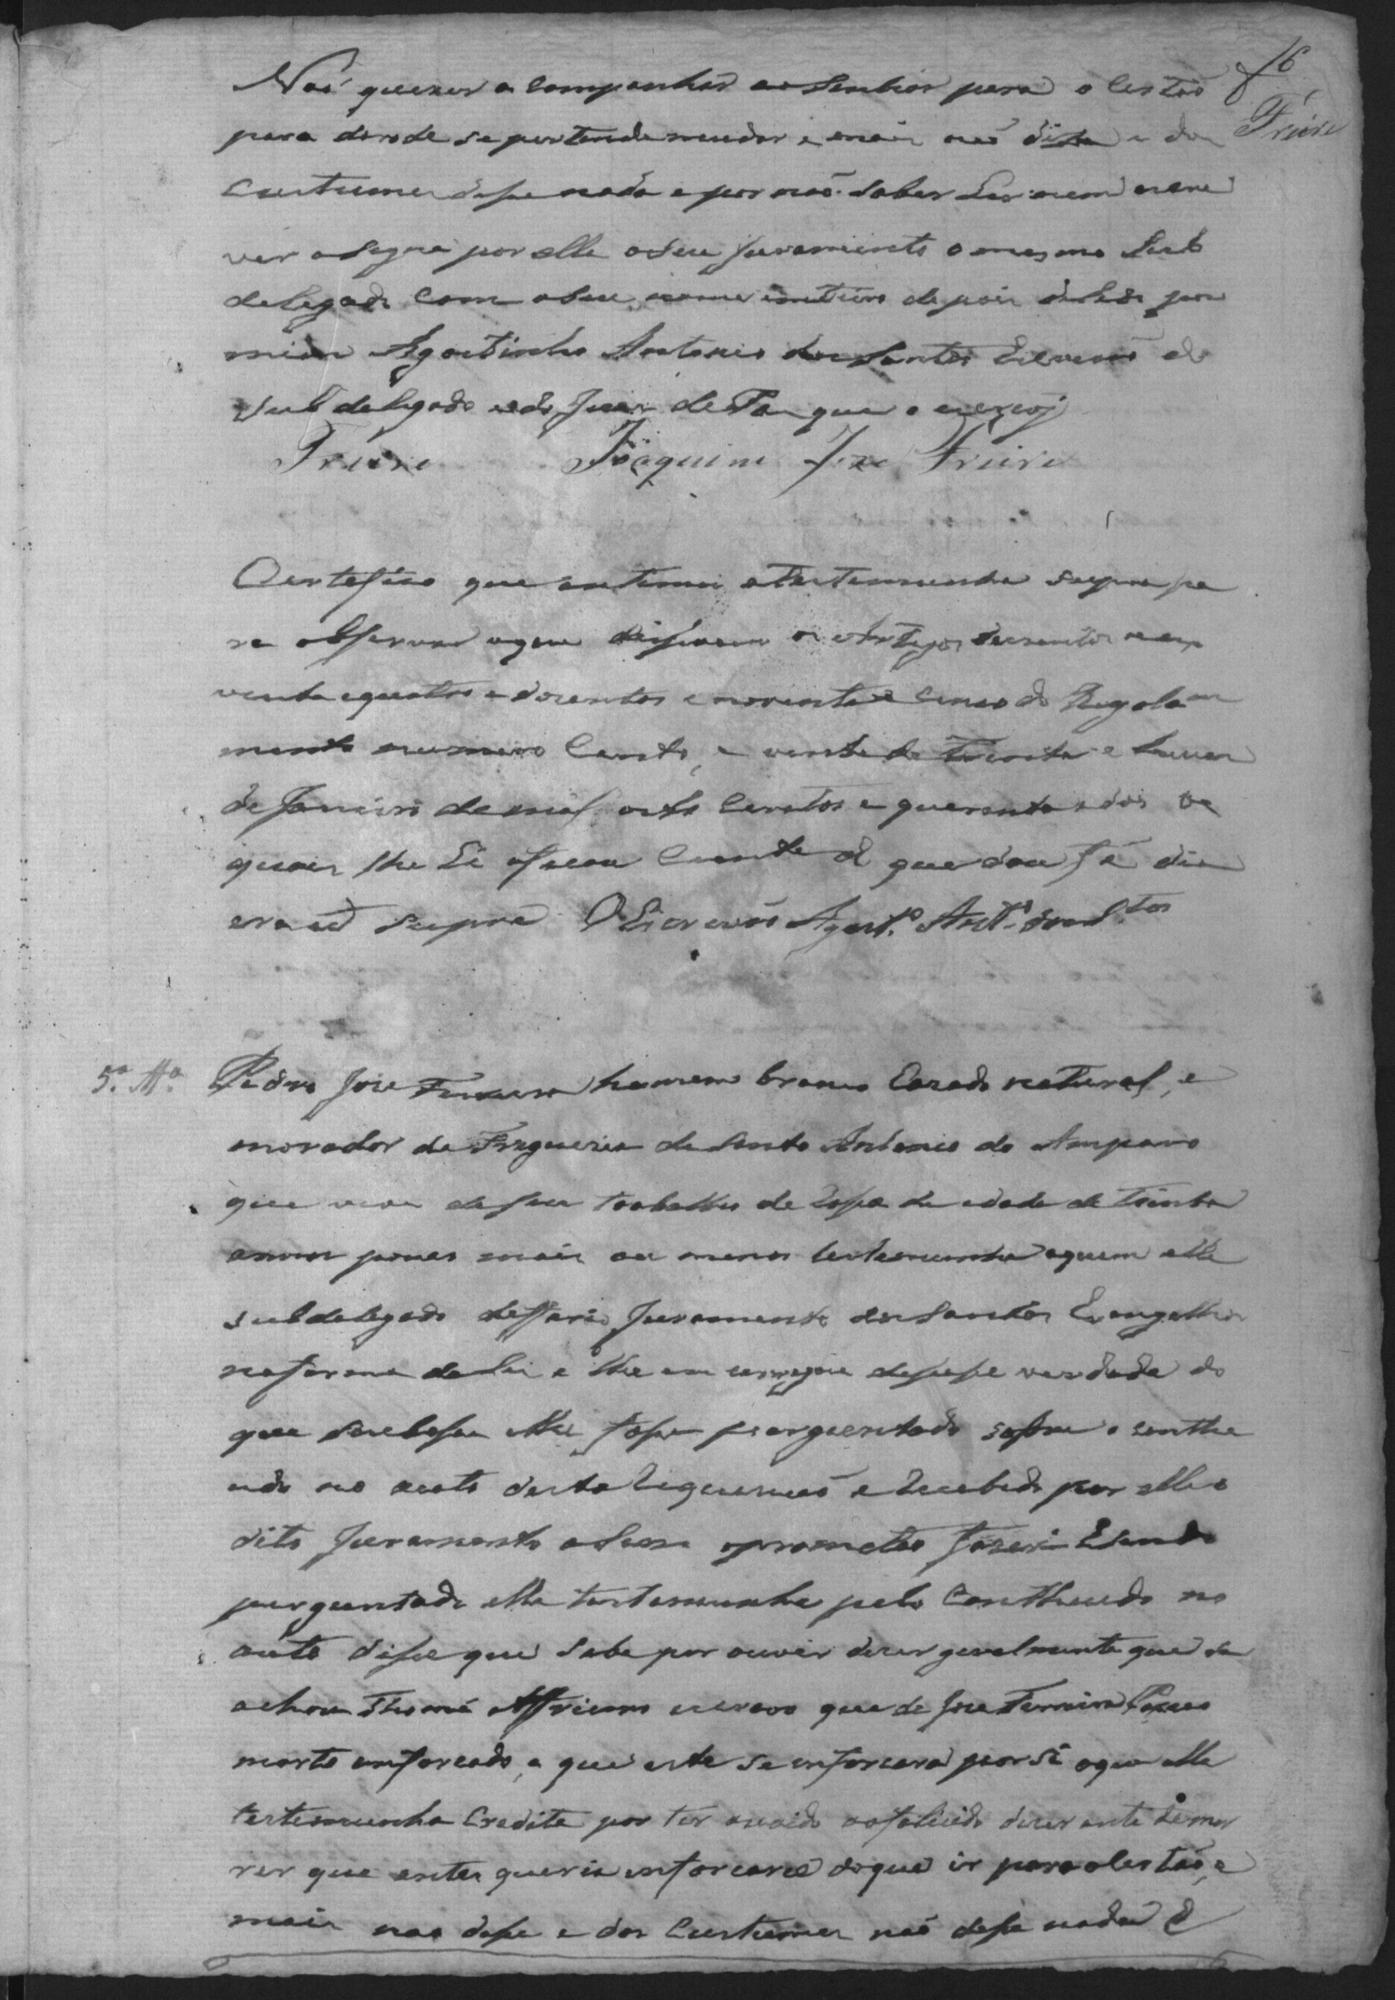 16
Freire
Naõ querer acompanhar ao Senhor para o Certaõ
para donde se pertende mudar e mais naõ disse e dos
custumes disse nada e por naõ saber Ler nem escre
ver asigna por elle o seu juramento o mesmo Sub
delegado com o seu nome inteiro depois de lido por
mim Agostinho Antonio dos Santos Escrivaõ do
Subdelegado e do Juiz de Paz que o escrevj
Freire Joaquim Jozé Freire
Certefico que entimei a testemunha supra pa
ra observar o que dispoem os Artigos duzentos e no
venta e quatro e dozentos e noventa e cinco do Regola
mento numero Cento, e vinte de trinta e hum
de Janeiro de mil oito centos e quarenta e dois os
quaes lhe Li e ficou ciente do que dou fé dia
era ut supra O Escrivaõ Agost.º Ant.º dos S.tos
5.ª Mª Pedro Jose Ferreira homem branco Cazado natural, e
morador da Freguezia de Santo Antonio do Amparo
que vive de seu trabalho de Rossa de edade de trinta
annos pouco mais ou menos testemunha a quem elle
subdelegado defferio Juramento dos Santos Evangelhos
na forma da Lei e lhe encarregou disesse verdade do
que soubesse e lhe fosse perguntado sobre o conthe
udo no auto desta Enquiriçaõ e Recebido por elle o
dito Juramento asim o prometeo fazer Esendo
perguntado elle testemunha pelo Contheudo no
auto disse que sabe por ouvir dizer geralmente que se
achou Thomé Affricano escravo que de Joze Ferreira Passos
morto enforcado, e que este se enforcara por si o que elle
testemunha Credita por ter ouvido ao falecido dizer ante de mor
rer que antes queria enforcarce do que ir para o Certaõ, e
mais nao disse e dos Custumes naõ disse nada E